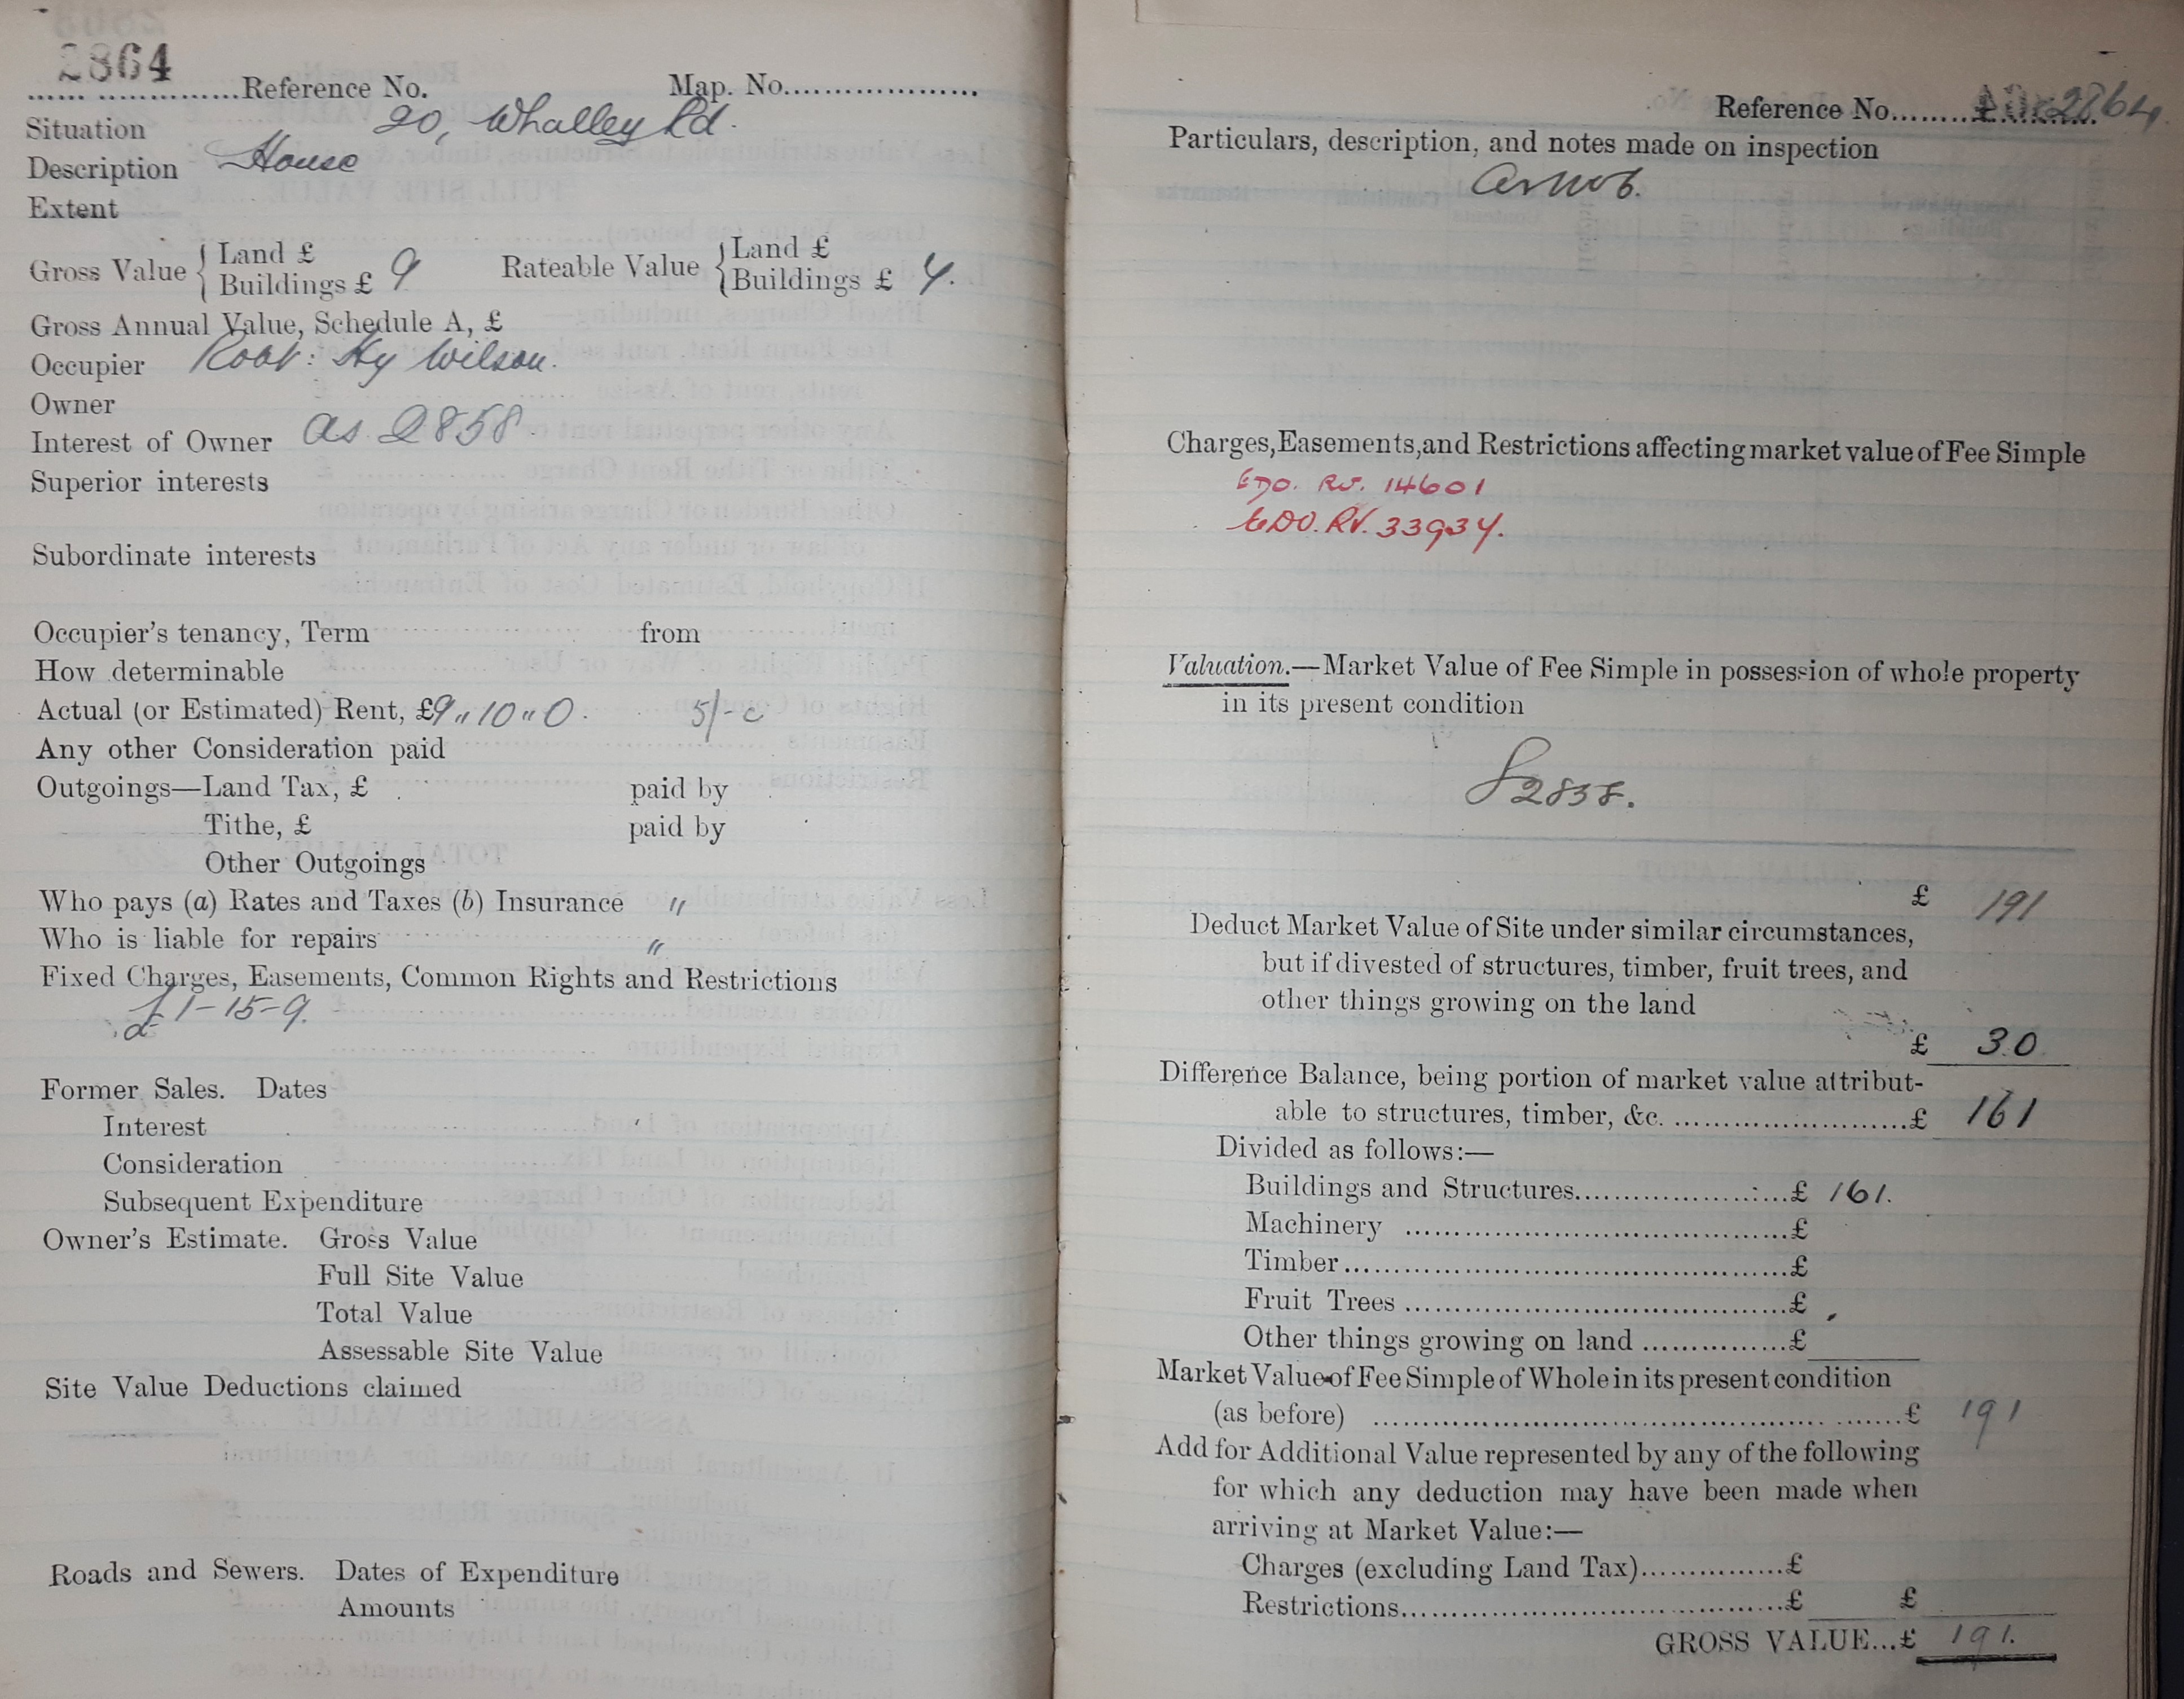 2864
Reference No. Map. No.
Situation 20, Whalley Rd.
Description House
Extent
Gross Value { Land £ Rateable Value { Land £
Buildings £ 9 Buildings £ 4.
Gross Annual Value, Schedule A, £
Occupier Robt: Hy Wilson.
Owner
Interest of Owner as 2858
Superior interests
Subordinate interests
Occupier's tenancy, Term from
How determinable
Actual (or Estimated) Rent, £9 " 10 " 0. 5/-
Any other Consideration paid
Outgoings—Land Tax, £ paid by
Tithe, £ paid by
Other Outgoings
Who pays (a) Rates and Taxes (b) Insurance "
Who is liable for repairs "
Fixed Charges, Easements, Common Rights and Restrictions
£1-15-9.
Former Sales. Dates
Interest
Consideration
Subsequent Expenditure
Owner's Estimate. Gross Value
Full Site Value
Total Value
Assessable Site Value
Site Value Deductions claimed
Roads and Sewers. Dates of Expenditure
Amounts
Reference No. 2864
Particulars, description, and notes made on inspection
Charges, Easements, and Restrictions affecting market value of Fee Simple
14601
RV. 33934.
Valuation.—Market Value of Fee Simple in possession of whole property
in its present condition
£ 191
Deduct Market Value of Site under similar circumstances,
but if divested of structures, timber, fruit trees, and
other things growing on the land
£ 30
Difference Balance, being portion of market value attribut-
able to structures, timber, &c. £ 161
Divided as follows:—
Buildings and Structures £ 161.
Machinery £
Timber £
Fruit Trees £
Other things growing on land £
Market Value of Fee Simple of Whole in its present condition
(as before) £ 191
Add for Additional Value represented by any of the following
for which any deduction may have been made when
arriving at Market Value:—
Charges (excluding Land Tax) £
Restrictions £ £
GROSS VALUE...£ 191.